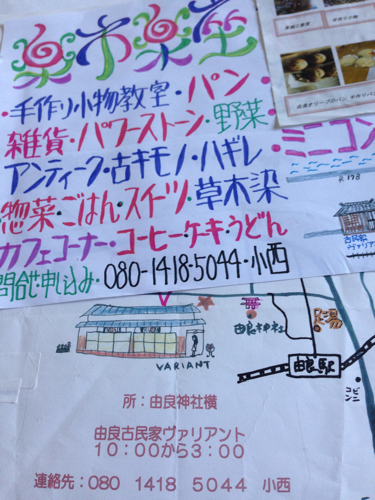 楽市楽座
・手作り小物教室・パン
雑貨・パワーストーン・野菜
アンティーク・古キモノ・ハギレ
・ミニコン
惣菜・ごはん・スイーツ・草木染
カフェコーナー・コーヒーケーキ・うどん
問合せ・申し込み・080-1418-5044・小西
R178
古民家
ヴァリアン
VARIANT
由良神社
足湯
由良駅
コンビニ
所：由良神社横
由良古民家ヴァリアント
10：00から3：00
連絡先：080 1418 5044 小西